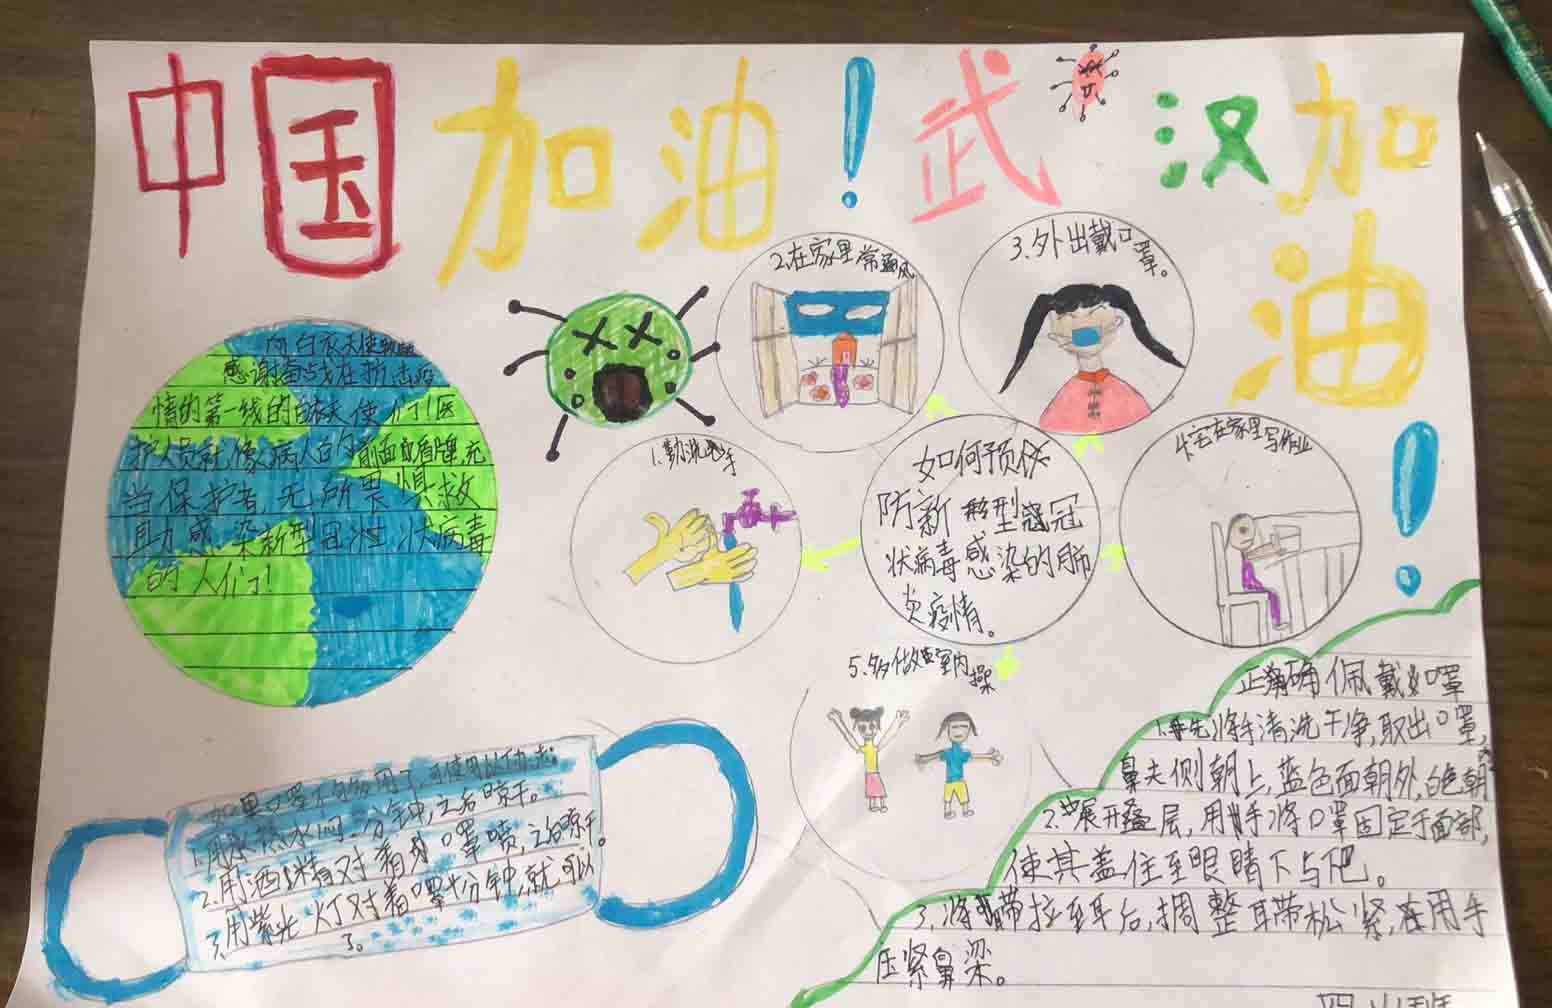 中国加油！武汉加
油！
向白衣天使
感谢奋战在抗击疫
情的第一线的白衣天使们！医
护人员就像病人的前面的盾牌，充
当保护者，无所畏惧救
助感染新型冠状病毒
的人们！
1.勤洗手
2.在家里常通风
3.外出戴口罩。
4.宅在家里写作业
5.多做室内操
如何预
防新型冠
状病毒感染的肺
炎疫情。
如果口罩不够多用了，可使用以下办法：
1.用热水闷一分钟，之后晾干。
2.用洒精对着口罩喷，之后晾干。
3.用紫光灯对着口罩十分钟，就可以
了。
正确佩戴口罩
1.先将手清洗干净，取出口罩，
鼻夹侧朝上，蓝色面朝外，白色朝
2.展开叠层，用手将口罩固定于面部，
使其盖住至眼睛下与下巴。
3.将带拉至耳后，调整耳带松紧，在用手
压紧鼻梁。